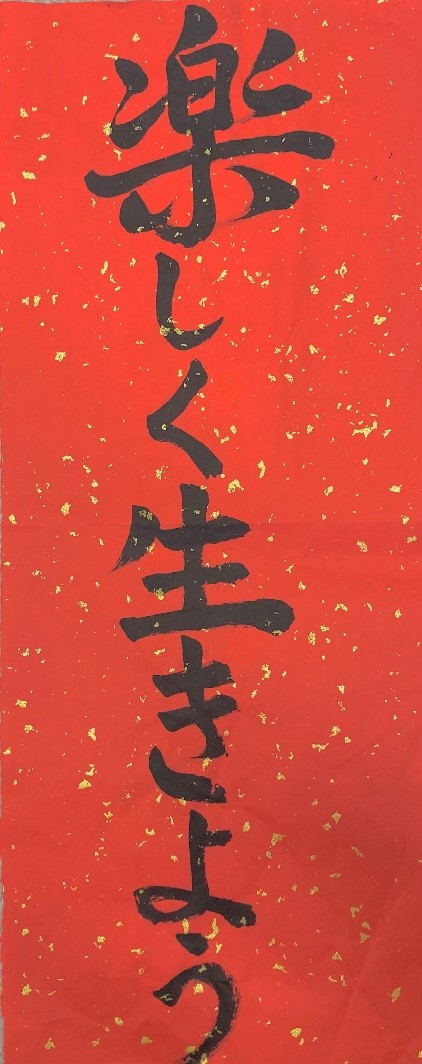 楽しく生きよう